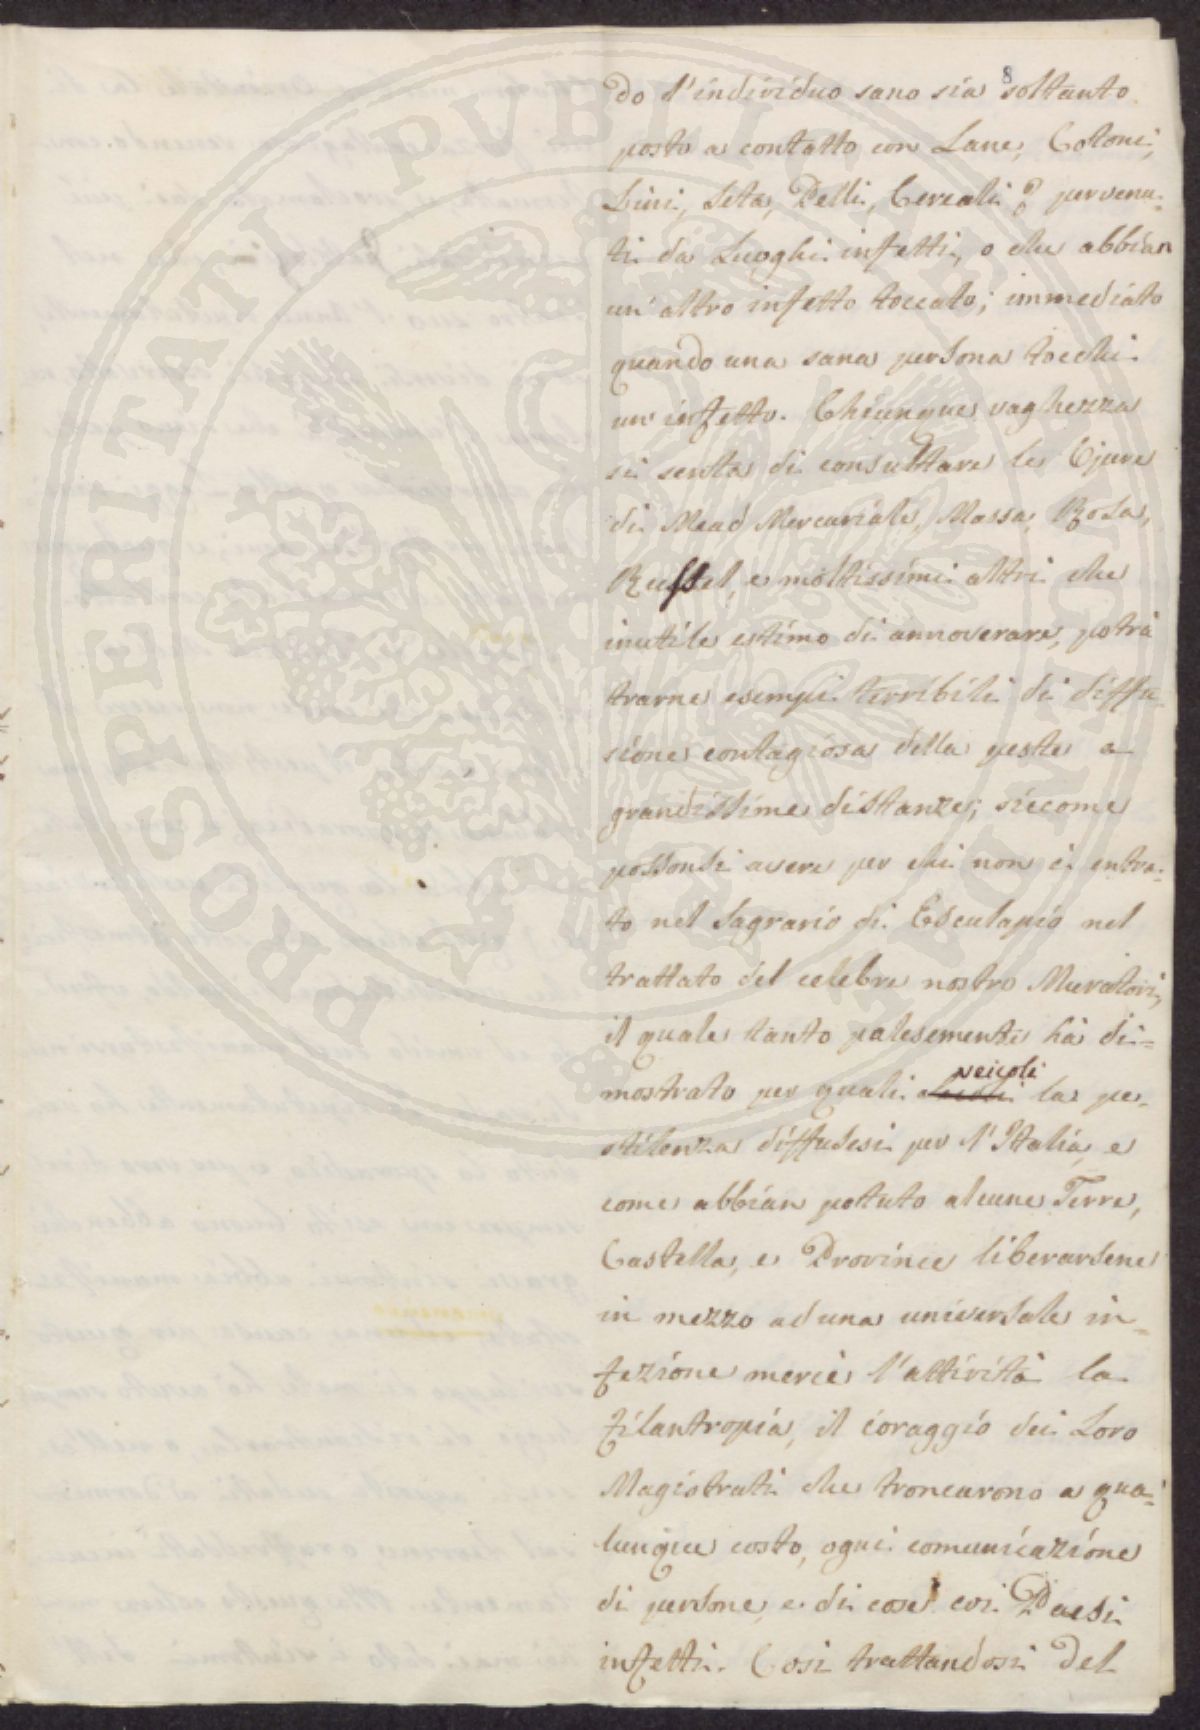 8
do l'individuo sano sia soltanto
posto a contatto con Lane, Cotoni,
Lini, Seta, Pelli, Cereali & pervenu-
ti da Luoghi infetti, o che abbian
un' altro infetto toccato; immediato
quando una sana persona tocchi
un infetto. Chiunque vaghezza
si senta di consultare le Opere
di Mead Mercuriale, Massa, Rosa,
Russel, e moltissimi altri che
inutile estimo di annoverare, potrà
trarne esempi terribili di diffu-
sione contagiosa della peste a
grandissime distanze; siccome
possonsi avere per chi non è entra-
to nel Sagrario di Esculapio nel
trattato del celebre nostro Muratori,
il quale tanto palesemente hà di-
mostrato per quali veicoli la pe-
stilenza diffusesi per l'Italia, e
come abbian potuto alcune Terre,
Castella, e Province liberarsene
in mezzo ad una universale in-
fezione mercè l'attività la
filantropia, il coraggio dei Loro
Magistrati che troncarono a qua-
lunque costo, ogni comunicazione
di persone, e di cose coi Paesi
infetti. Così trattandosi del
PROSPERITATI PUBLICAE